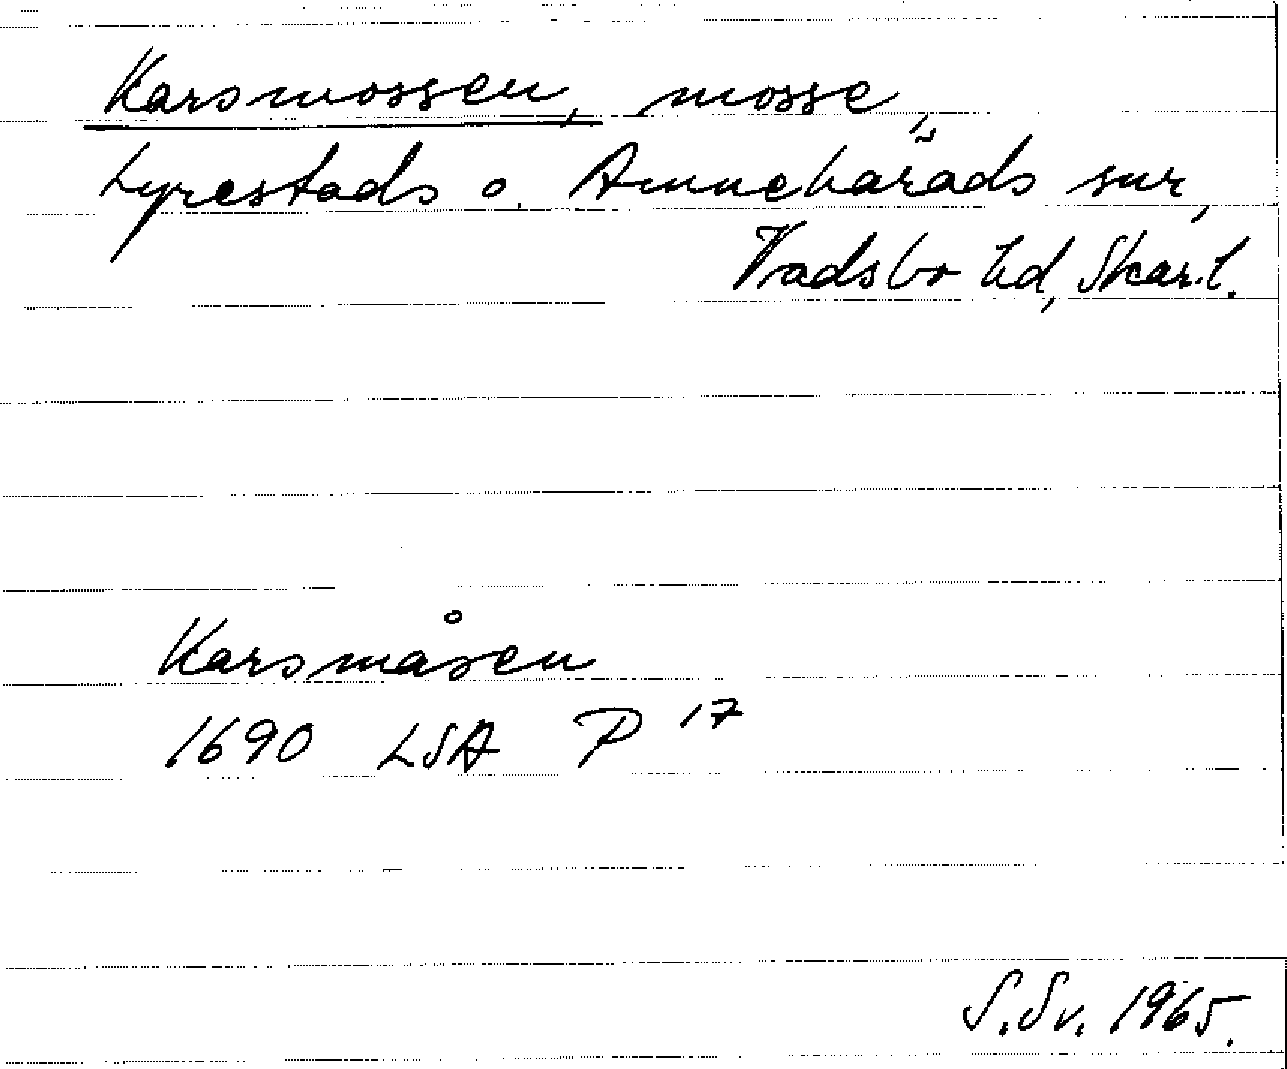 Karsmossen, mosse,
Lyrestads o. Amnehärads snr,
Vadsbo hd, Skar.l.
Karsmåsen
1690 LSA P 17
S.Sv. 1965.